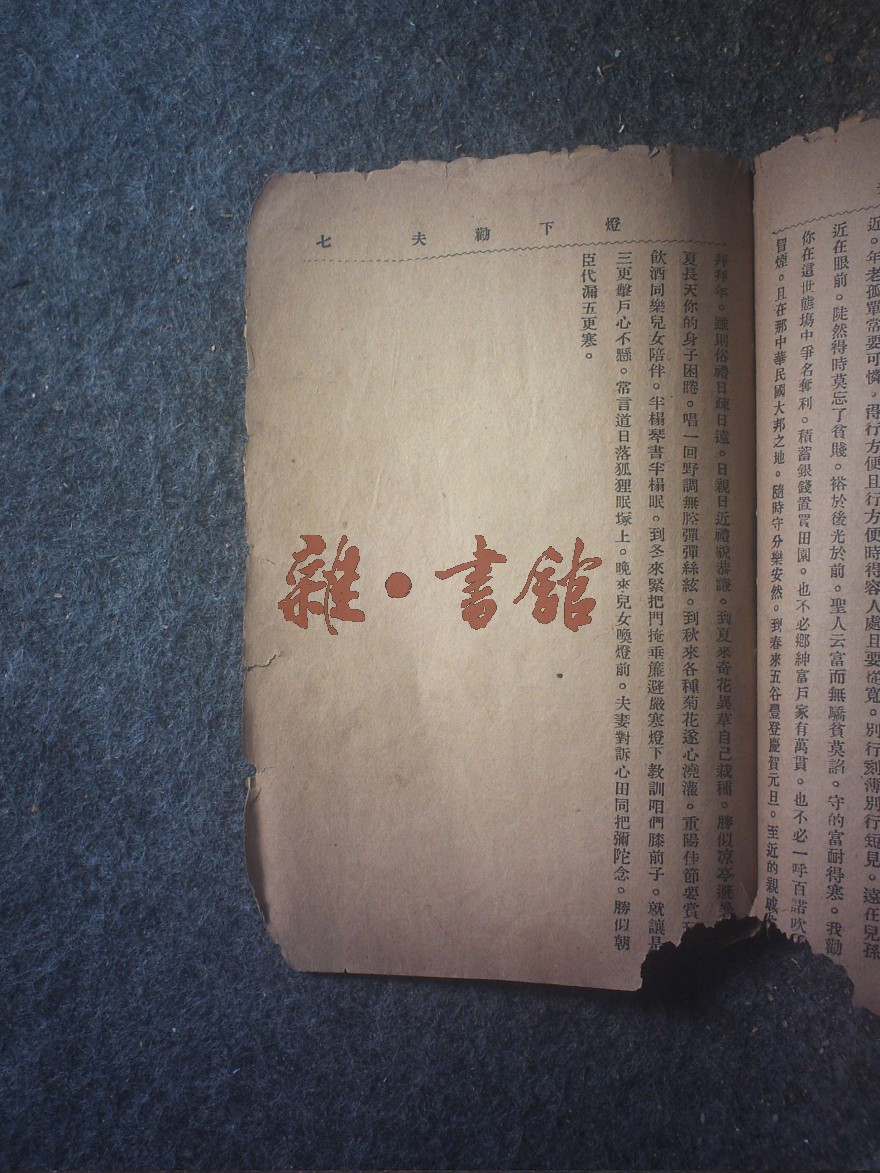 近。年老孤單常要可憐。得行方便且行方便時得容人處且要從寬。別行刻薄別行短見。遠在兒孫
近在眼前。陡然得時莫忘了貧賤。裕於後光於前。聖人云富而無驕貧莫諂。守的富耐得寒。我勸
你在這世態塲中爭名奪利。積蓄銀錢置買田園。也不必鄉紳富戶家有萬貫。也不必一呼百諾吹
冒煙。且在那中華民國大邦之地。隨時守分樂安然。到春來五谷豐登慶賀元旦。至近的親戚
燈下勸夫 七
拜年。雖則俗禮日疎日遠。日親日近禮貌恭謙。到夏來奇花異草自己栽種。勝似凉亭避
夏長天你的身子困睠。唱一回野調無腔彈彈絲絃。到秋來各種菊花遂心澆灌。重陽佳節要賞
飲酒同樂兒女陪伴。半榻琴書半榻眠。到冬來緊把門掩垂簾避嚴寒燈下教訓咱們膝前子。就讓是
三更擊戶心不懸。常言道日落狐狸眠塚上。晚來兒女喚燈前。夫妻對訴心田同把彌陀念。勝似朝
臣代漏五更寒。
雜·書館